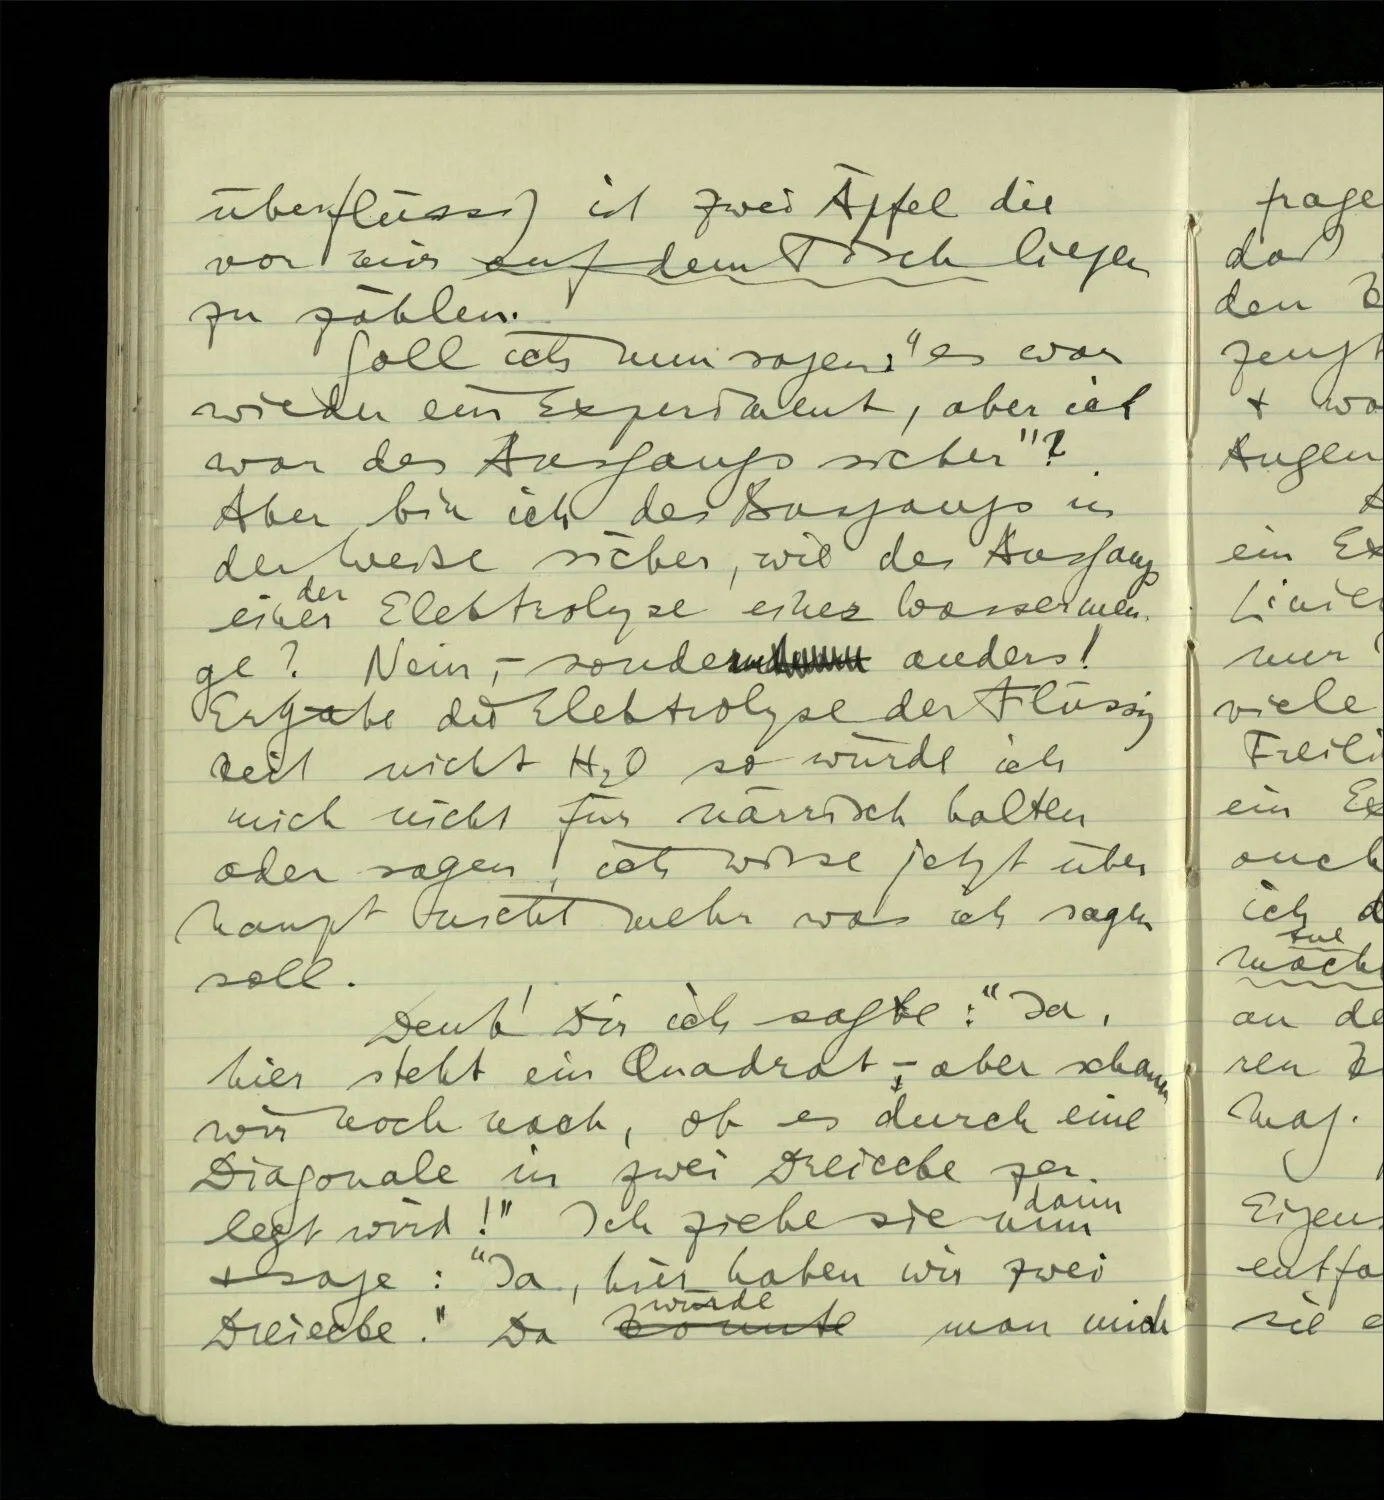 überflüssig ist zwei Äpfel die
vor mir auf dem Tisch liegen
zu zählen.
Soll ich nun sagen: "es war
wieder ein Experiment, aber ich
war des Ausgangs sicher"?
Aber bin ich des Ausgangs in
der Weise sicher, wie des Ausgangs
der
einer Elektrolyse einer Wassermen-
ge? Nein, – sondern anders!
Ergäbe die Elektrolyse der Flüssig
keit nicht H2O so würde ich
mich nicht für närrisch halten
oder sagen, ich wisse jetzt über
haupt nicht mehr was ich sagen
soll.
Denk' Dir ich sagte: "Ja,
hier steht ein Quadrat – aber schauen
wir noch nach, ob es durch eine
Diagonale in zwei Dreiecke zer-
legt wird!" Ich ziehe sie nun
dann
+ sage: "Ja, hier haben wir zwei
würde
Dreiecke." Da könnte man mich
frage
das
den
zeugt
+ wo
Augen
ein Ex
Linien
nur
viele
Freili
ein Ex
auch
ich d
an de
ren
mag.
Eigens
entfa
sie